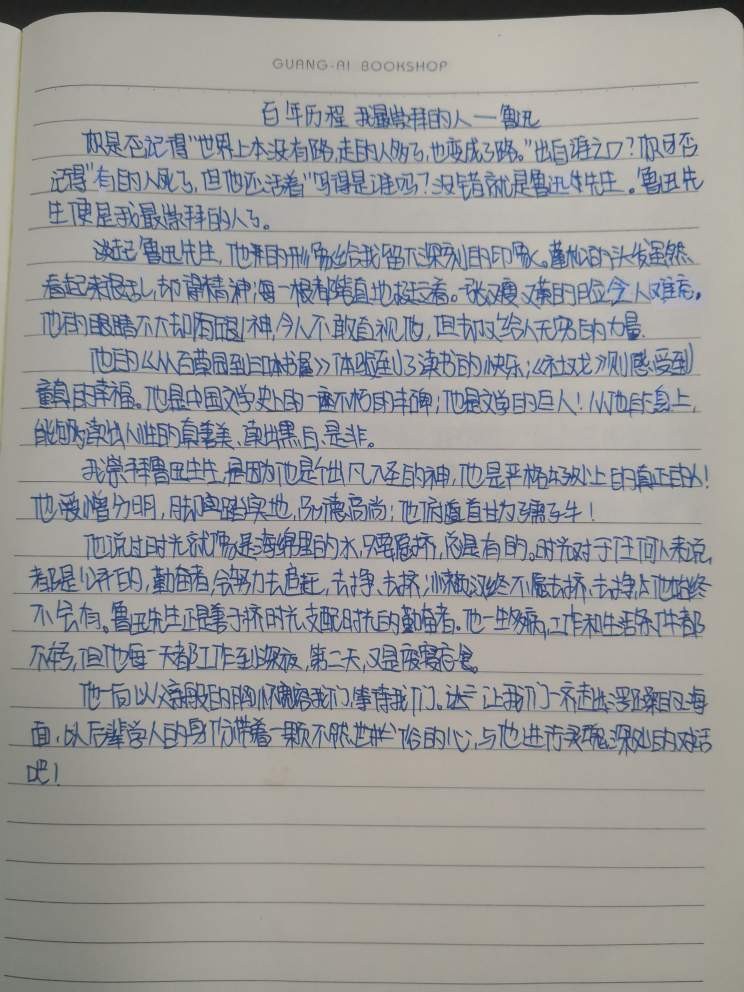 GUANG-AI BOOKSHOP
百年历程 我最崇拜的人——鲁迅
你是否记得"世界上本没有路,走的人多了,也变成了路。"出自谁之口?你可否
记得"有的人死了,但他还活着"写得是谁吗?没错就是鲁迅先生。鲁迅先
生便是我最崇拜的人了。
谈起鲁迅先生,他的形象给我留下深刻的印象。蓬松的头发虽然
看起来很乱,却很精神;每一根都笔直地挺立着。张又瘦又黄的脸令人难忘。
他的眼睛不大却炯炯有神,令人不敢直视他,但却又给人无穷的力量
他的《从百草园到三味书屋》体验到了读书的快乐;《社戏》则感受到
童真的幸福。他是中国文学史上的一座不朽的丰碑;他是文学的巨人!从他的身上,
能够读出人性的真善美、读出黑白、是非。
我崇拜鲁迅先生,是因为他是个出凡入圣的神,他是严格意义上的真正的人!
他爱憎分明,脚踏实地,品德高尚;他俯首甘为孺子牛!
他说过时光就像是海绵里的水,只要愿挤,总是有的。时光对于任何人来说,
都是公平的,勤奋者,会努力去追赶,去挣、去挤;懒汉终不愿去挤、去挣,他始终
不会有。鲁迅先生正是善于挤时光支配时光的勤奋者。他一生多病,工作和生活条件都
不好,但他每一天都工作到深夜,第二天,又是废寝忘食。
他一向以海般的胸怀宽容我们,善待我们。让我们一齐走出浮躁的海
面,以后辈学人的身份带着一颗不俗的心,与他进行灵魂深处的对话
吧!